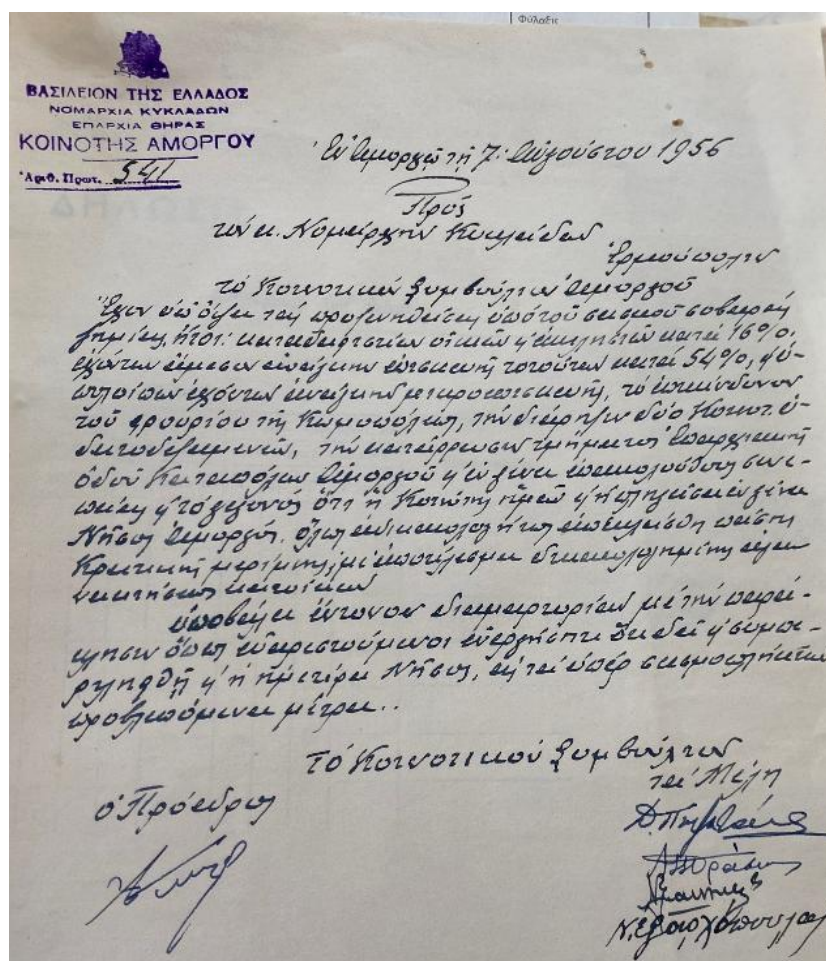 Φύλαξις
ΒΑΣΙΛΕΙΟΝ ΤΗΣ ΕΛΛΑΔΟΣ
ΝΟΜΑΡΧΙΑ ΚΥΚΛΑΔΩΝ
ΕΠΑΡΧΙΑ ΘΗΡΑΣ
ΚΟΙΝΟΤΗΣ ΑΜΟΡΓΟΥ
Ἀριθ. Πρωτ. 541
Ἐν Ἀμοργῷ τῇ 7. Αὐγούστου 1956
Πρός
τόν κ. Νομάρχην Κυκλάδων
Ἑρμούπολιν
τό Κοινοτικόν Συμβούλιον Ἀμοργοῦ
Ἔχον ὑπ' ὄψει τάς προξενηθείσας ὑπό τοῦ σεισμοῦ σοβαράς
ζημίας, ἤτοι: κατά 16%,
ἐχόντων ἄμεσον ἀνάγκην ἐπισκευῆς τοιούτων κατά 54%, ὑ-
πολοίπων ἐχόντων ἀνάγκην μικροεπισκευῆς, τό ἐπικίνδυνον
τοῦ φρουρίου τῆς Κωμοπόλεως, τήν διάρρηξιν δύο Κοινοτ. ὑ-
δατοδεξαμενῶν, τήν κατάρρευσιν τμήματος Ἐπαρχιακῆς
ὁδοῦ Καταπόλων Ἀμοργοῦ ἐπακολούθους συνε-
πείας τό γεγονός ὅτι ἡ Κοινότης ἡμῶν
Νῆσος Ἀμοργός, ὅλως ἀδικαιολογήτως ἀπεκλείσθη πάσης
Κρατικῆς μερίμνης, μέ ἀποτέλεσμα δικαιολογημένης ἀγα-
νακτήσεως κατοίκων
ὑποβάλλει ἔντονον διαμαρτυρίαν μέ τήν παρά-
κλησιν ὅπως εὐαρεστούμενοι ἐνεργήσητε συμπε-
ριληφθῇ ἡ ἡμετέρα Νῆσος, εἰς τά ὑπέρ σεισμοπλήκτων
προβλεπόμενα μέτρα..
τό Κοινοτικόν Συμβούλιον
ὁ Πρόεδρος
τά Μέλη